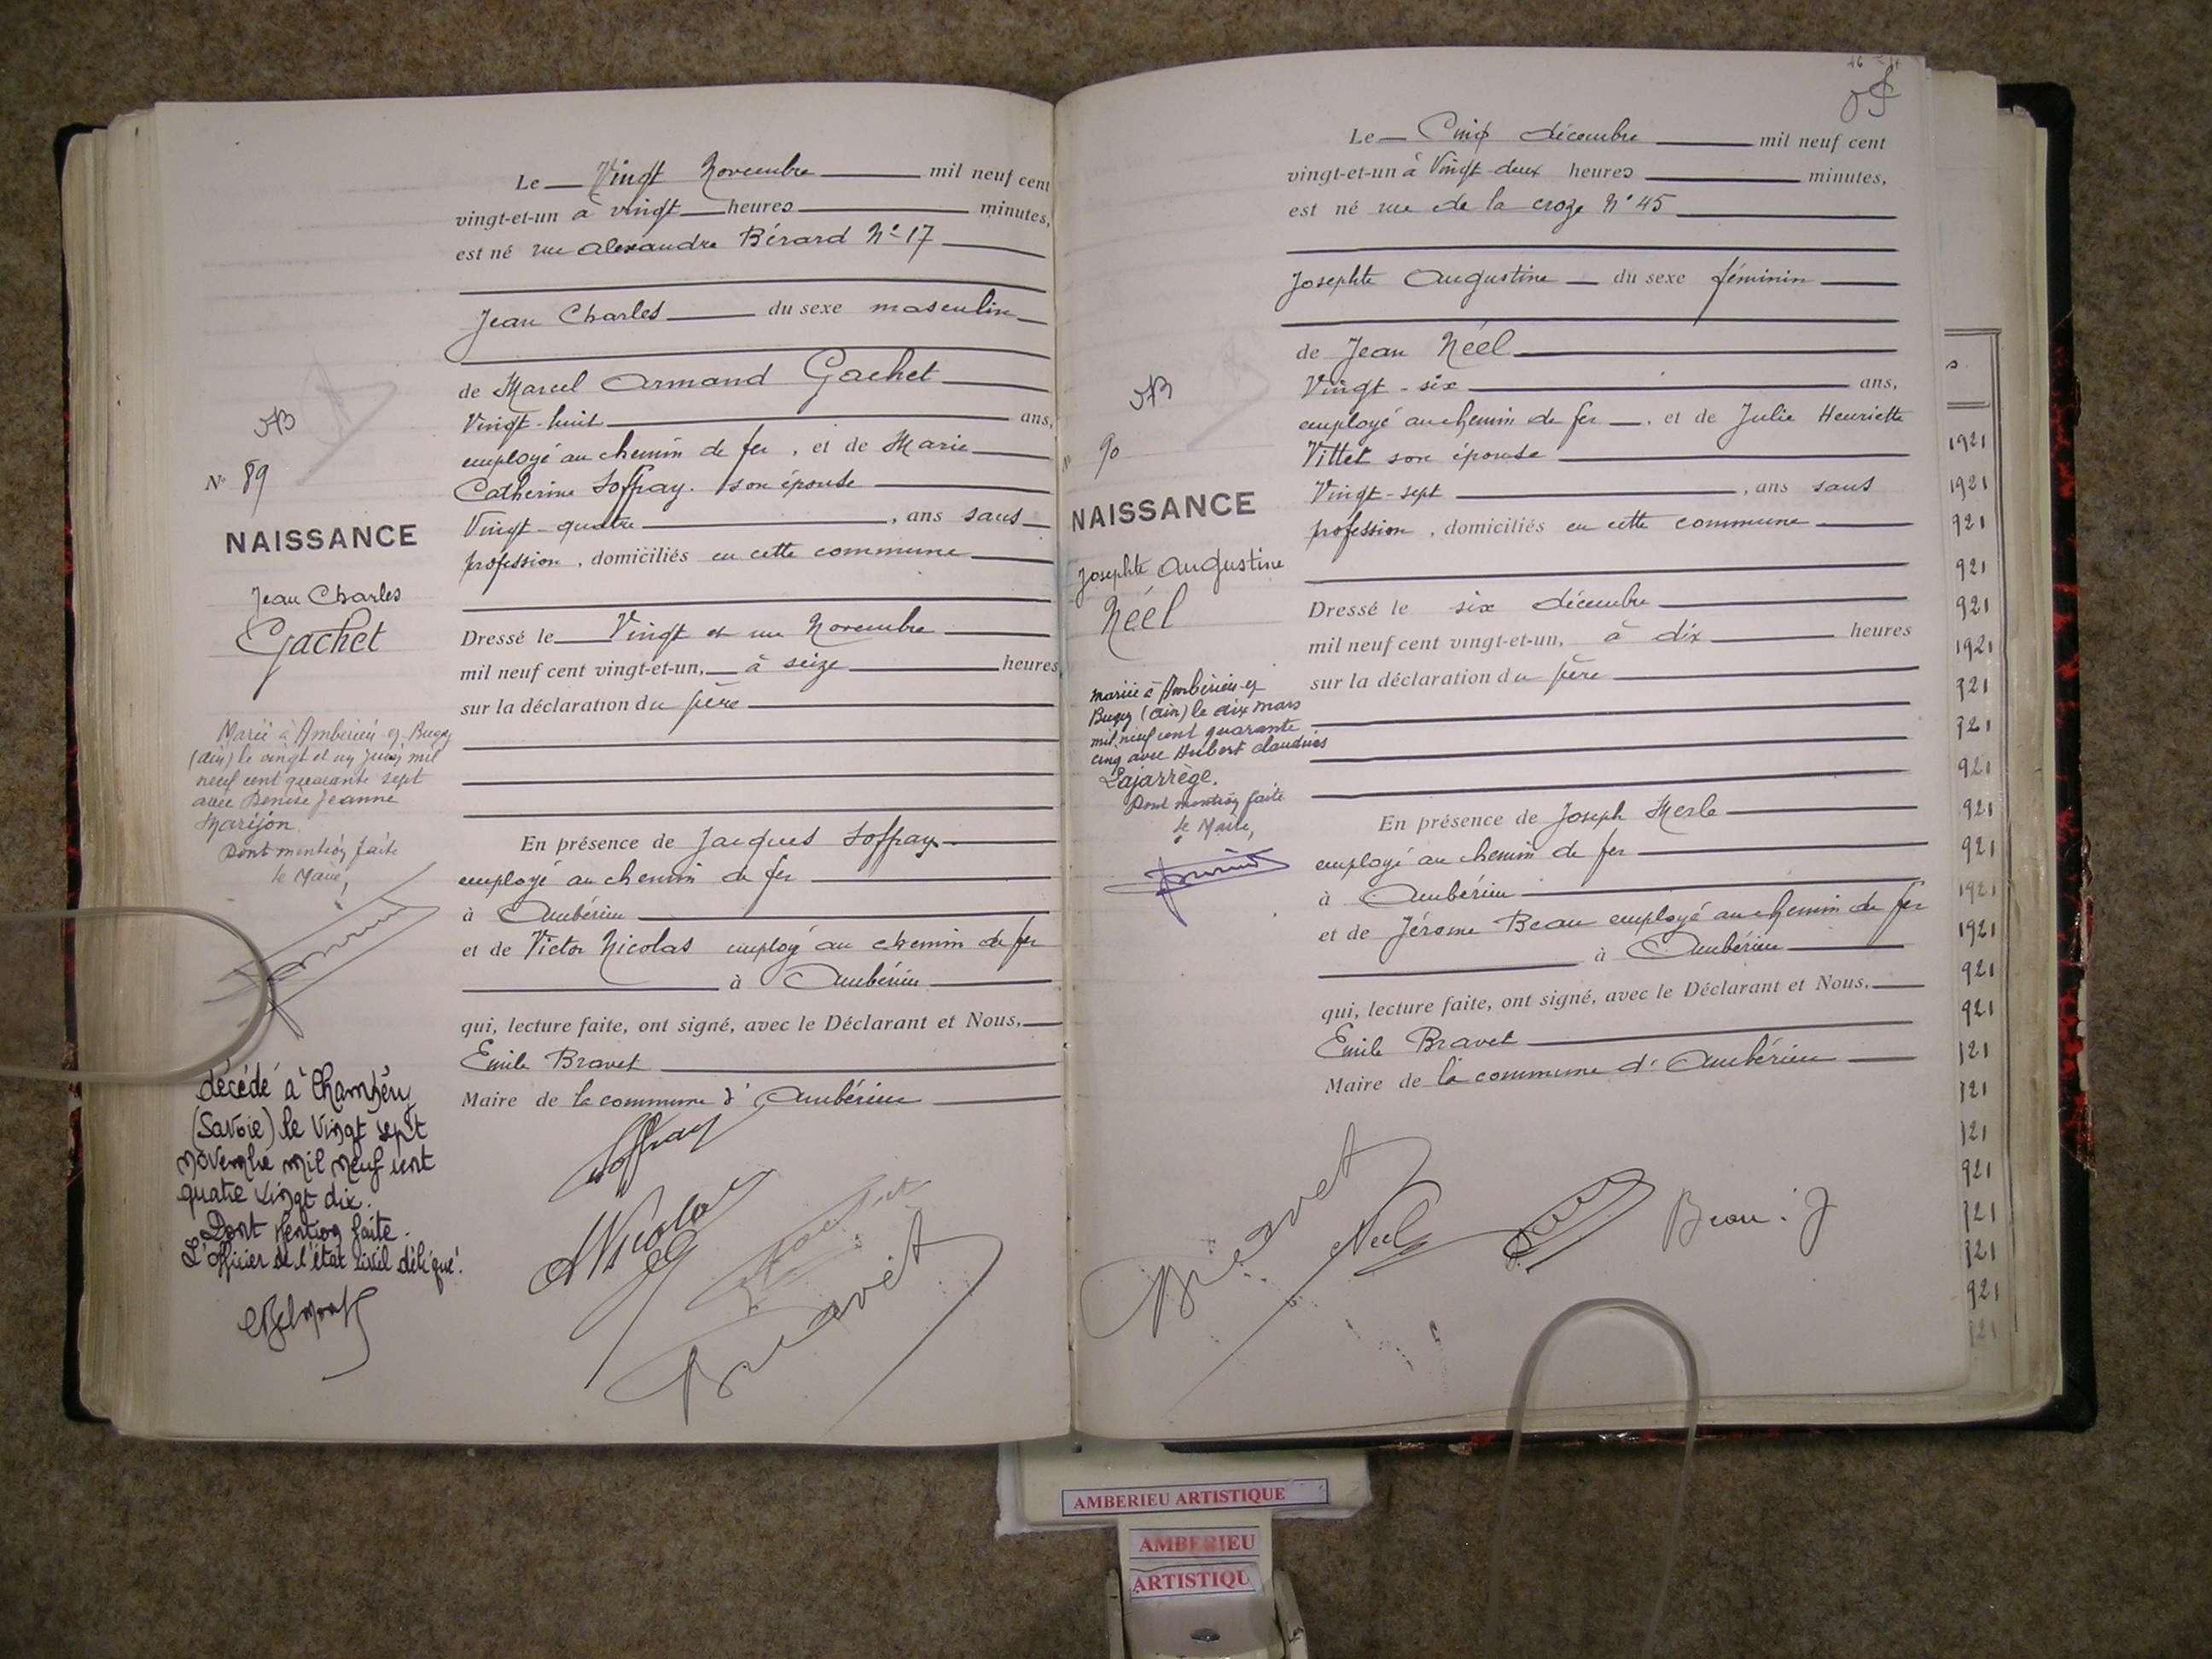 Le Vingt Novembre mil neuf cent
vingt-et-un à vingt heures minutes,
est né rue alexandre Bérard N° 17
Jean Charles du sexe masculin
de Marcel Armand Gachet
Vingt-huit ans,
employé au chemin de fer, et de Marie
Catherine Soffray. son épouse
Vingt-quatre, ans sans
profession, domiciliés en cette commune
Dressé le Vingt et un Novembre
mil neuf cent vingt-et-un, à seize heures
sur la déclaration du père
En présence de Jacques Soffray
employé au chemin de fer
à Ambérieu
et de Victor Nicolas employé au chemin de fer
à Ambérieu
qui, lecture faite, ont signé, avec le Déclarant et Nous,
Emile Bravet
Maire de la commune d'Ambérieu
Soffray
Nicolas
Gachet
Bravet
N° 89
NAISSANCE
Jean Charles
Gachet
Marié à Ambérieu-en-Bugey
(Ain) le vingt et un juin mil
neuf cent quarante sept
avec Denise Jeanne
Marijon.
Dont mention faite
le Maire,
décédé à Chambéry
(Savoie) le vingt sept
novembre mil neuf cent
quatre vingt dix.
Dont mention faite.
L'officier de l'état civil délégué.
Le Cinq décembre mil neuf cent
vingt-et-un à Vingt-deux heures minutes,
est né rue de la croze N° 45
Josephte Augustine du sexe féminin
de Jean Néel
Vingt-six ans,
employé au chemin de fer, et de Julie Henriette
Vittet son épouse
Vingt-sept, ans sans
profession, domiciliés en cette commune
Dressé le six décembre
mil neuf cent vingt-et-un, à dix heures
sur la déclaration du père
En présence de Joseph Merle
employé au chemin de fer
à Ambérieu
et de Jérome Beau employé au chemin de fer
à Ambérieu
qui, lecture faite, ont signé, avec le Déclarant et Nous,
Emile Bravet
Maire de la commune d'Ambérieu
Bravet
Néel
Beau. J
N° 90
NAISSANCE
Josephte Augustine
Néel
mariée à Ambérieu-en
Bugey (Ain) le dix mars
mil neuf cent quarante
cinq avec Hubert Claudius
Lajarrège.
Dont mention faite
le Maire,
1921
1921
921
921
921
1921
921
921
921
921
921
1921
1921
921
921
121
121
121
921
121
121
921
AMBERIEU ARTISTIQUE
AMBERIEU
ARTISTIQU